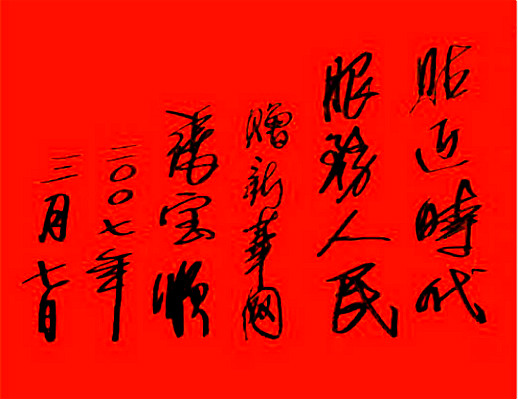 貼近時代
服務人民
贈新華网
宝順
二〇〇七年
三月七日